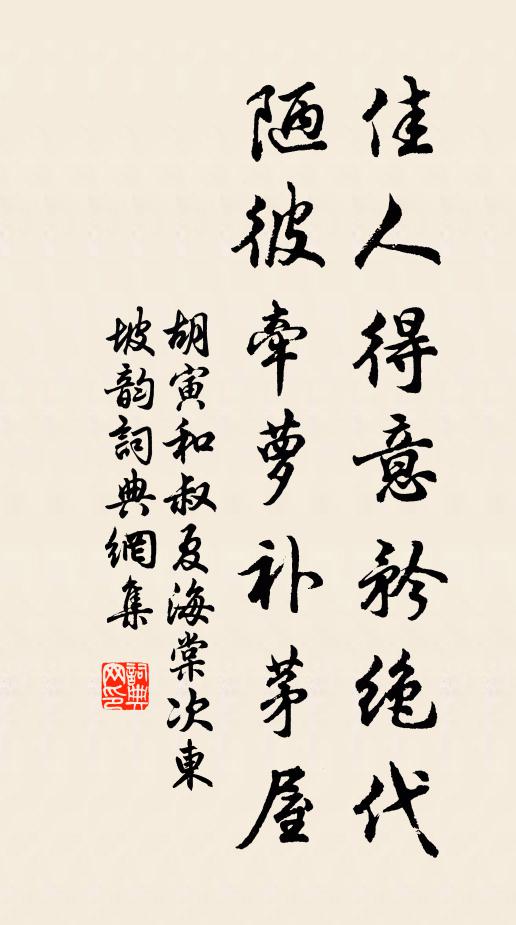 佳人得意矜絶代
陋彼牽蘿补茅屋
胡寅和叔夏海棠次東
坡韵詞典網集
詞典网印